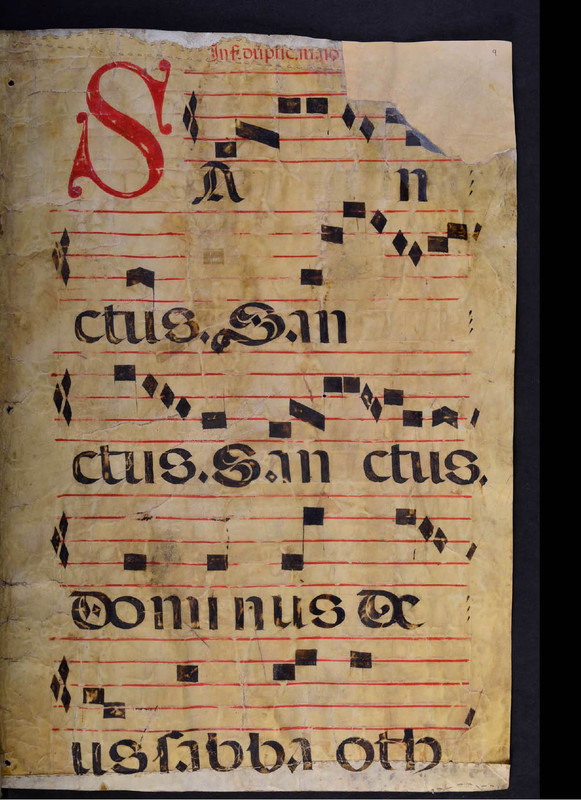 Inf. duplic. maio
SAn
ctus. San
ctus. San ctus.
Dominus De
us sabba oth